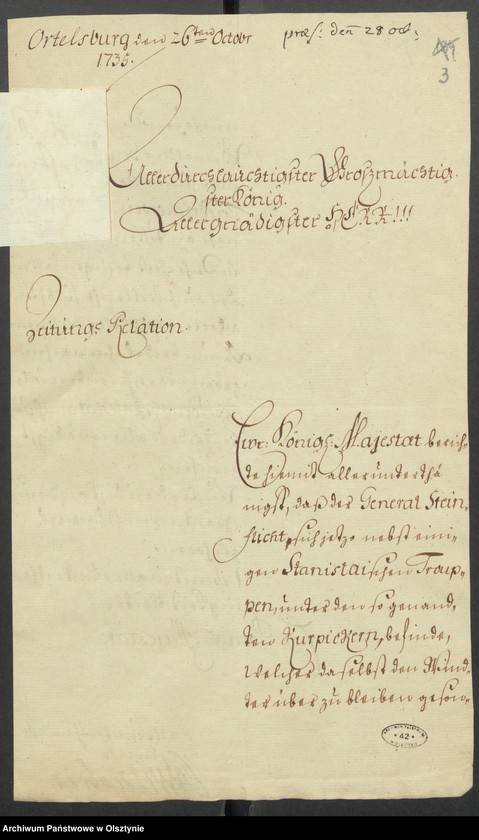 Ortelsburg den 26ten Octobr
1735.
præs: den 28 oct:
3
Allerdurchlauchtigster Großmächtig-
ster König.
Allergnädigster HERR!!!
Zeitungs Relation.
Ewr: Königl: Majestat berich-
te hiemit allerunterthä
nigst, daß der General Stein-
flicht, sich jetzo nebst eini-
gen Stanislaischen Troup-
pen, unter den so genand-
ten Kurpickern, befinde,
welcher daselbst den Wind-
ter über zu bleiben geson-
42
Archiwum Państwowe w Olsztynie